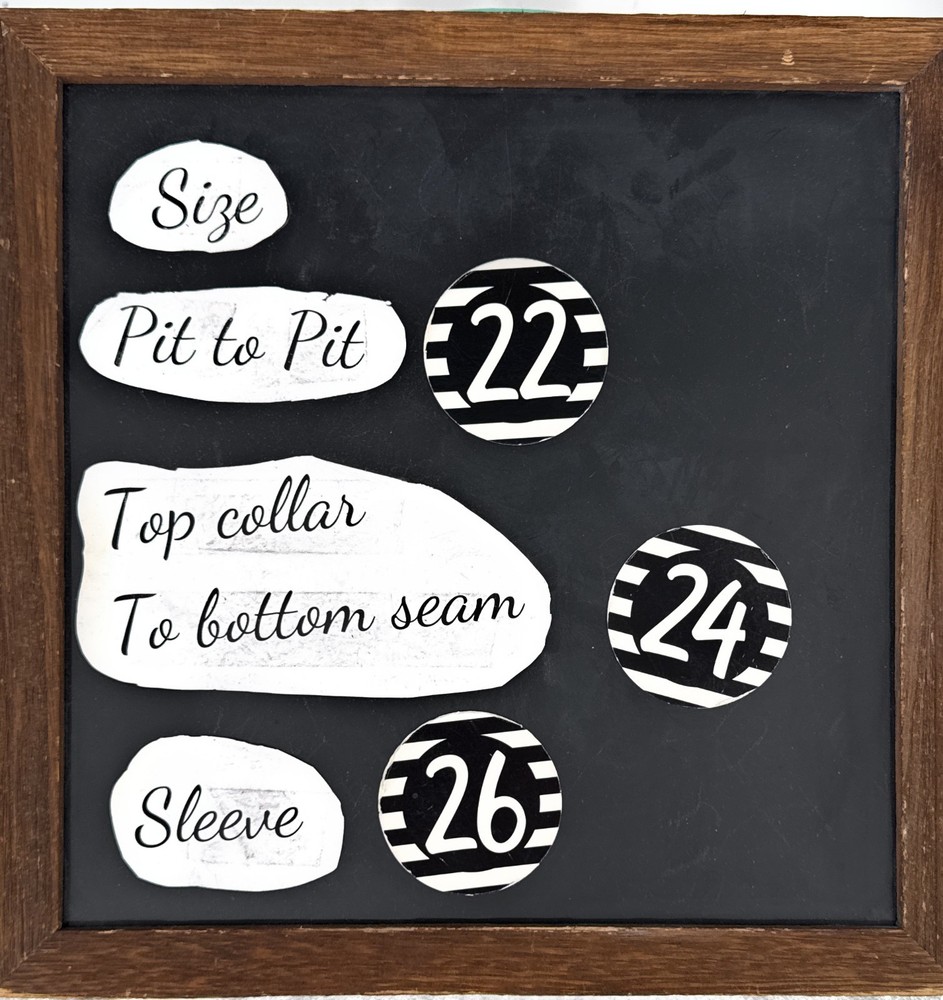 Size
Pit to Pit 22
Top collar
To bottom seam 24
Sleeve 26